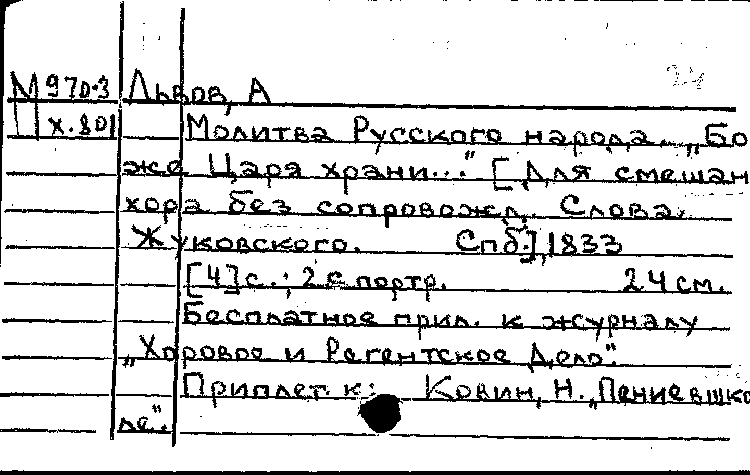 24
М 970-3 Львов, А
х.801 Молитва Русского народа „Бо
же Царя храни..." [Для смешан
хора без сопровожд. Слова.
Жуковского. Спб.], 1833
[4]с.; 2 с портр. 24 см.
Бесплатное прил. к журналу
„Хоровое и Регентское Дело".
Приплет. к: Ковин, Н. „Пение в шко
ле".